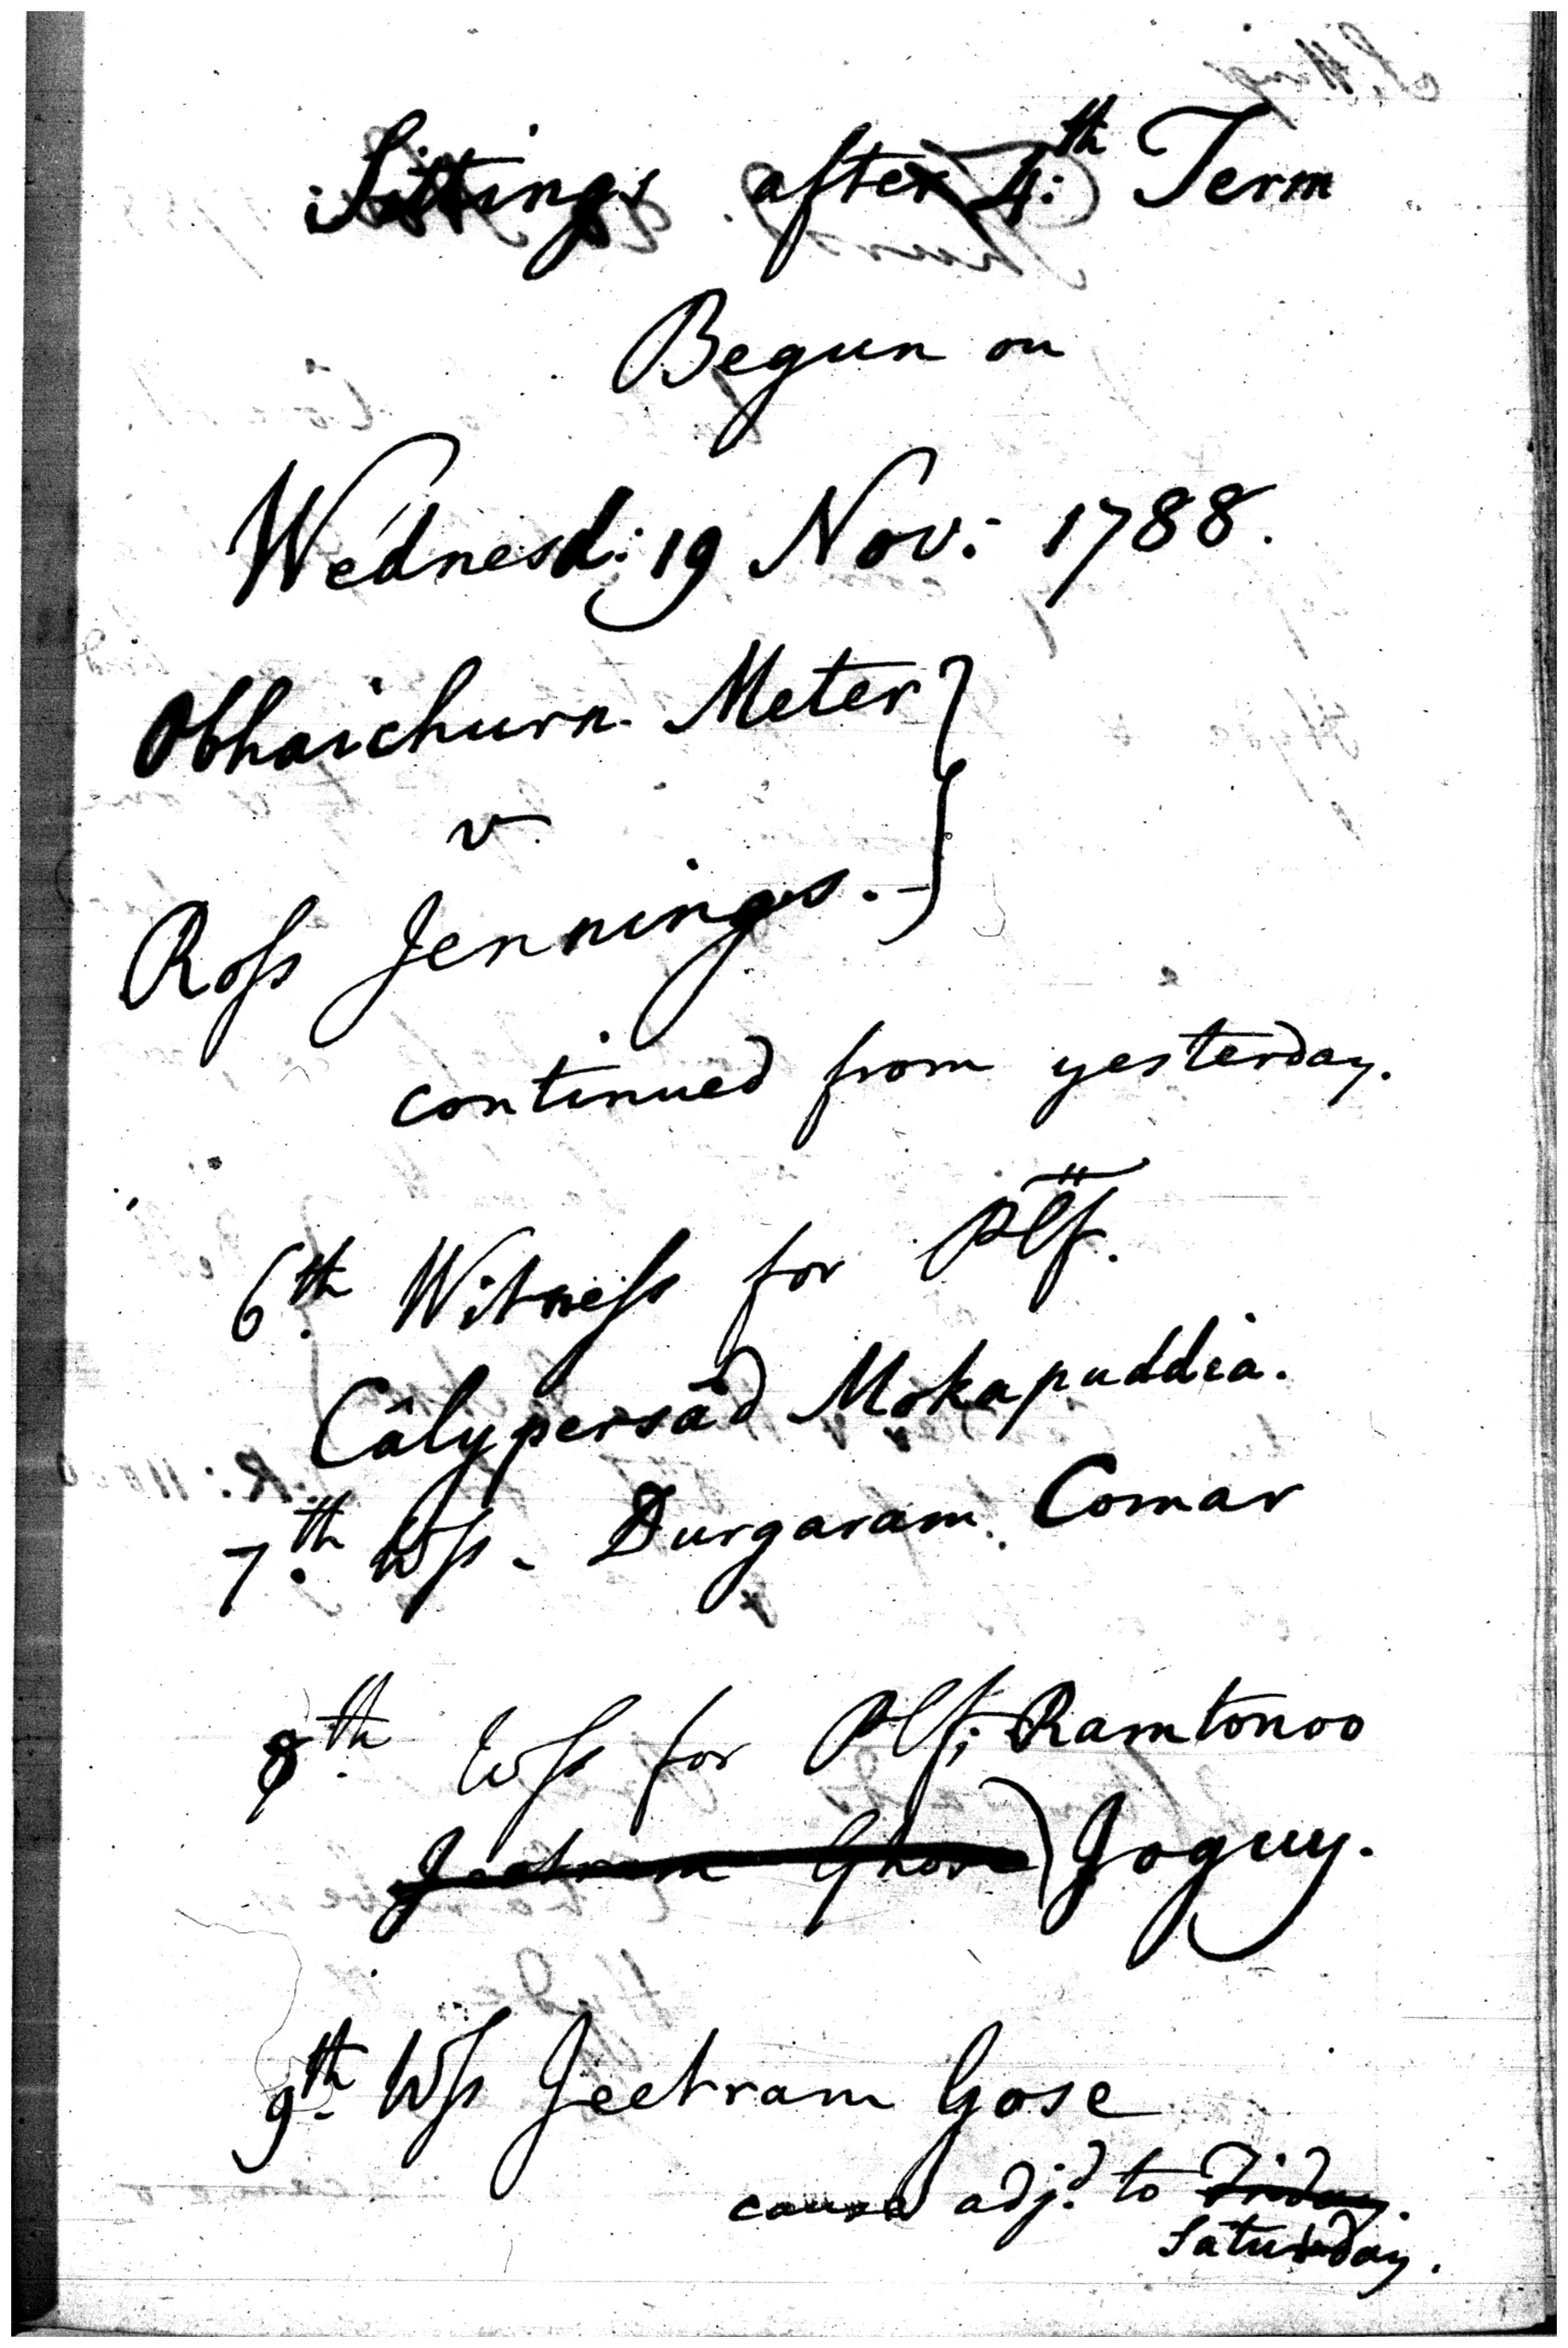 Sittings after 4:th Term
Begun on
Wednesd: 19 Nov: 1788.
Obhaichurn Meter }
v
Ross Jennings. }
continued from yesterday.
6th. Witness for Plf.
Câlypersâd Mokapuddia.
7th. Wss. Durgaram Comar
8th. Wss for Plf; Ramtonoo
~~Jeetram Ghose~~) Joguy.
9th. Wss Jeetram Gose
cause adjd. to ~~Friday~~.
Saturday.